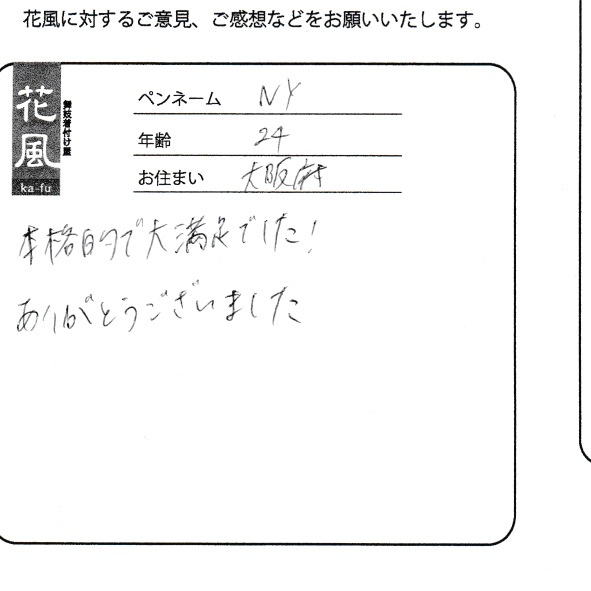 花風に対するご意見、ご感想などをお願いいたします。
花風
舞妓着付け屋
ka-fu
ペンネーム NY
年齢 24
お住まい 大阪府
本格的で大満足でした!
ありがとうございました